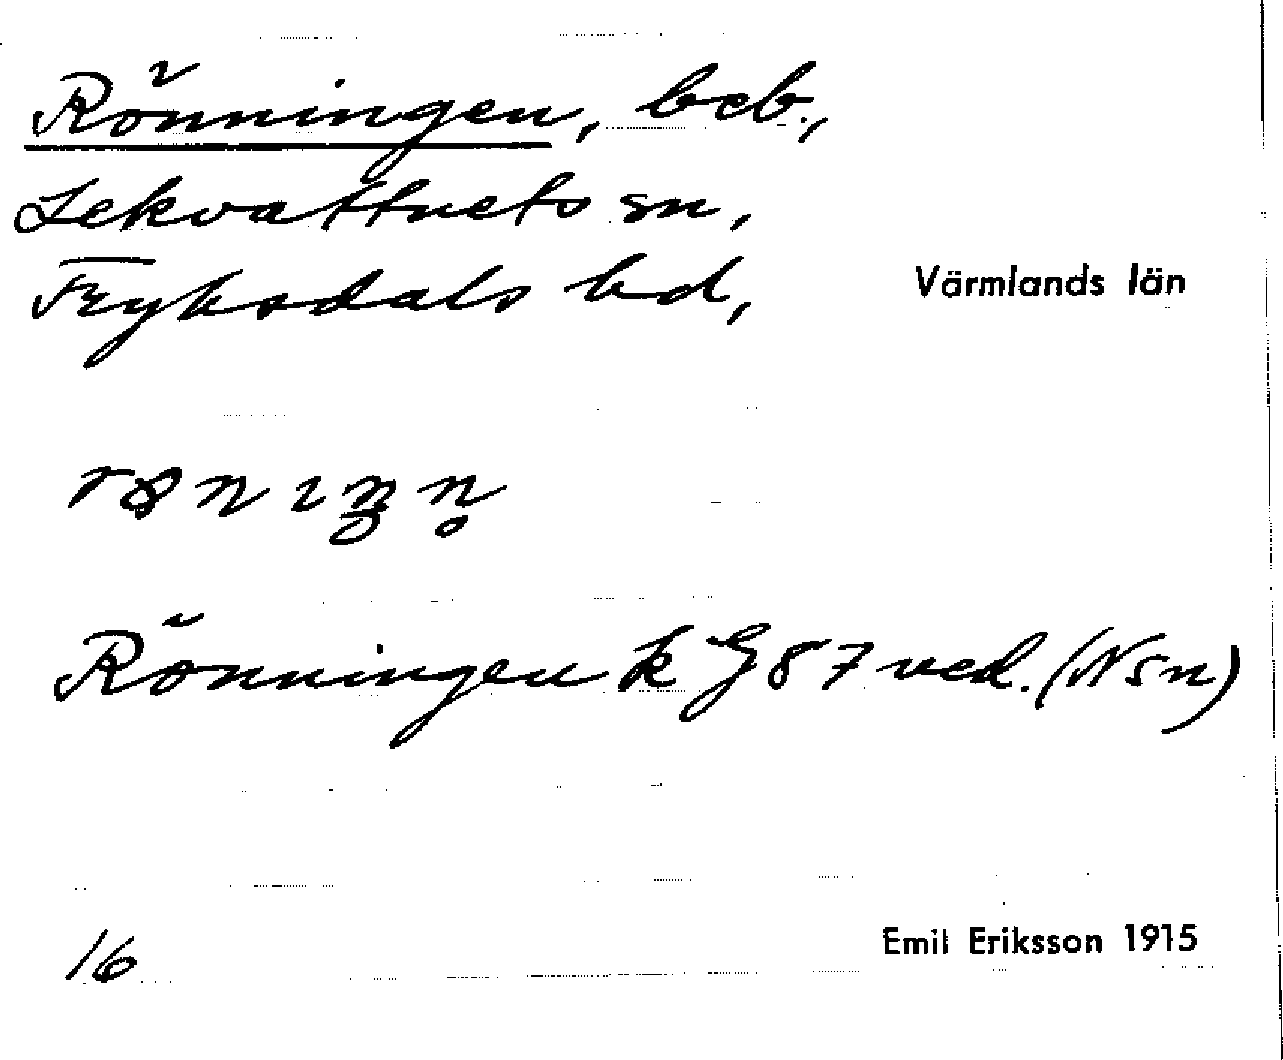 Rönningen, beb.,
Lekvattnets sn,
Fryksdals hd,
Värmlands län
Rönningen k G 87 ved. (N sn)
16
Emil Eriksson 1915